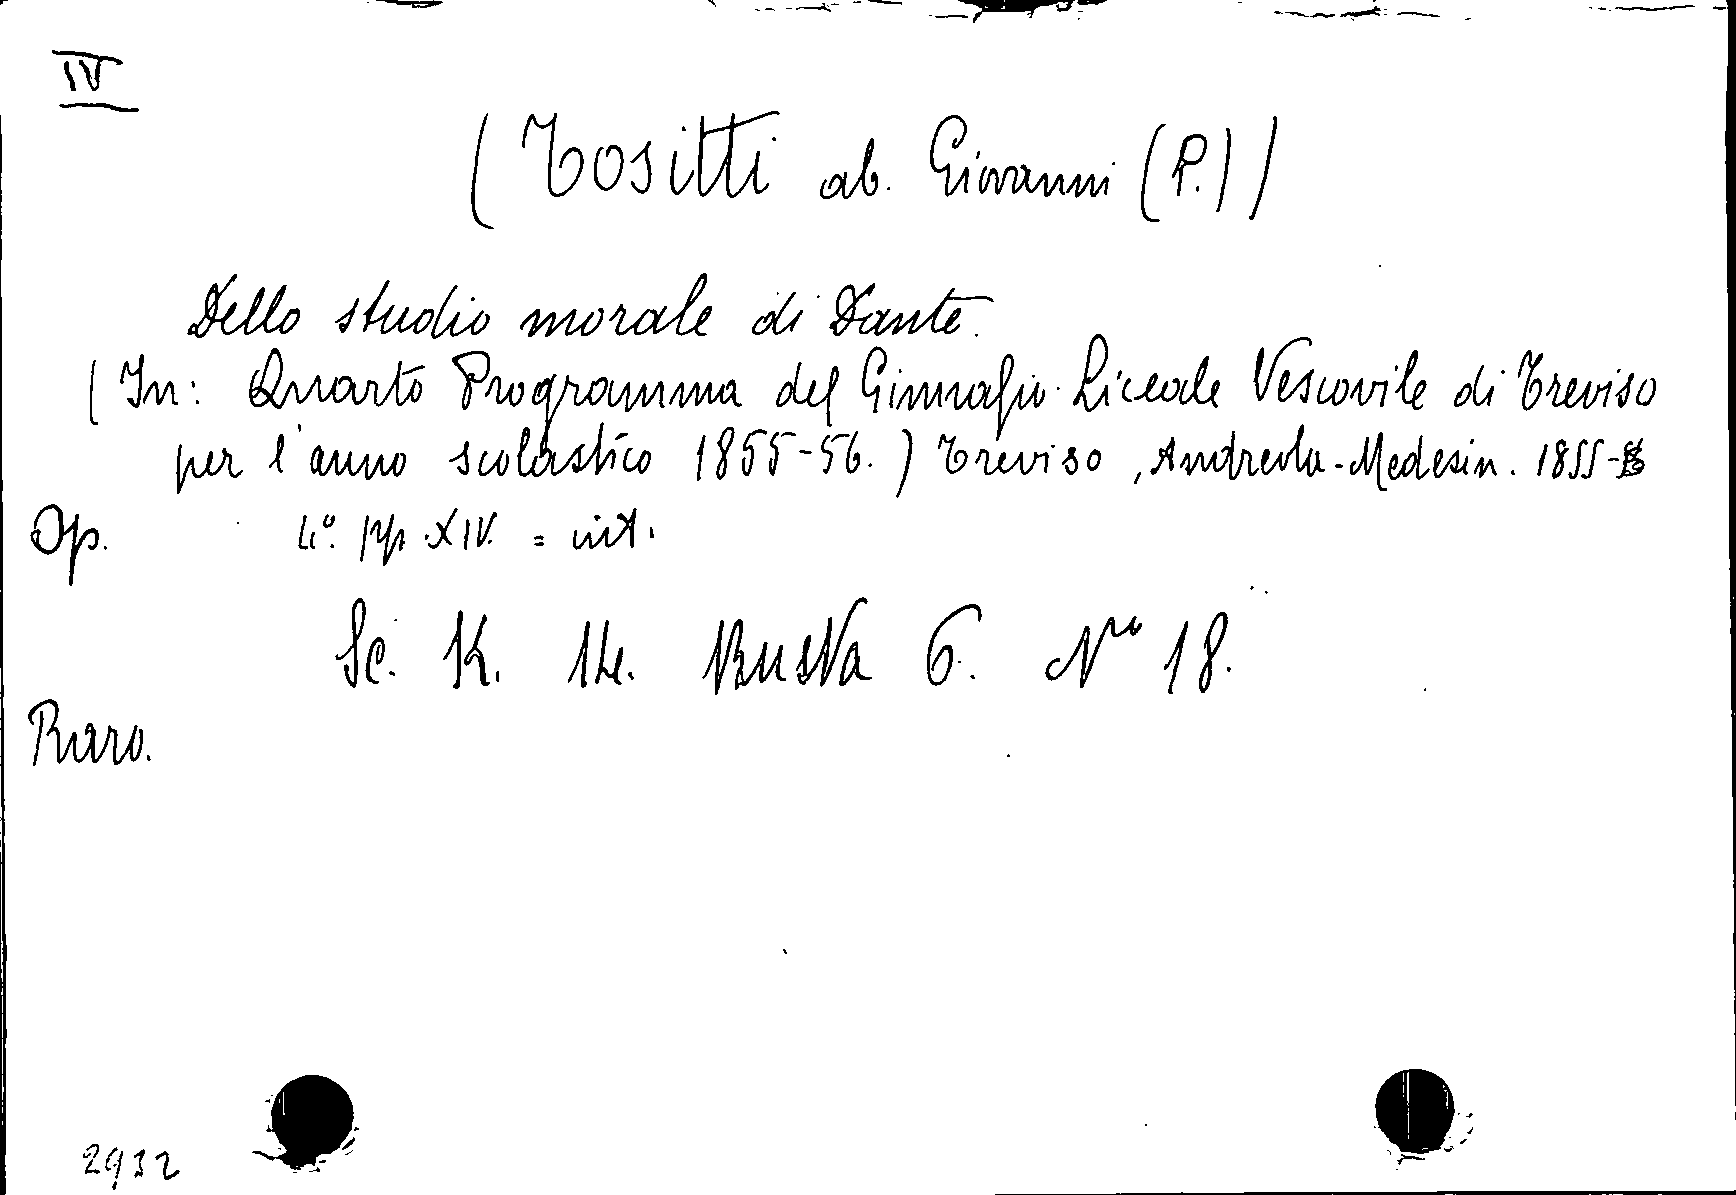 IV
(Tositti ab. Giovanni (P.))
Dello studio morale di Dante.
(In: Quarto Programma del Ginnasio Liceale Vescovile di Treviso
per l'anno scolastico 1855-56.) Treviso, Andreola-Medesin. 1855-
Op. 4º. pp. XIV. = int.
Sc. K. 14. Busta 6. Nro 18.
Raro.
2932